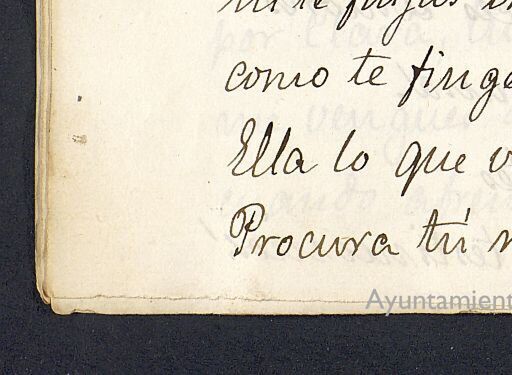 como te finge
Ella lo que v
Procura tú
Ayuntamient